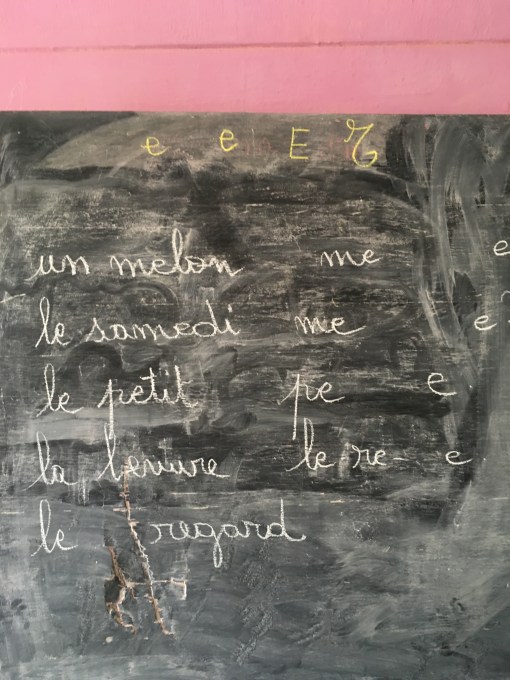 e e E E
un melon me e
le samedi me e
le petit pe e
la levure le-re- e
le regard